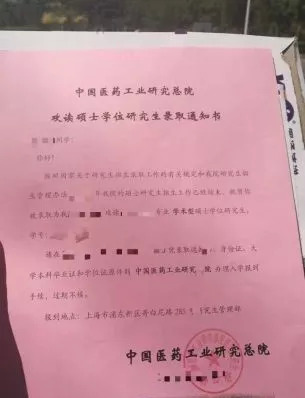 中国医药工业研究总院
攻读硕士学位研究生录取通知书
同学:
你好!
按照国家关于研究生招生录取工作的有关规定和我院研究生招
生管理办法, 年我院的硕士研究生招生工作已经结束,
被录取为我 攻读 专业 学术型硕士学位研究生,
学号:
请在 录取通知 、身份证、大
学本科毕业证和学位证原件到 中国医药工业研究 院 办理入学报到
手续,过期不候。
报到地点:上海市浦东新区哥白尼路285号 研究生管理部
中国医药工业研究总院